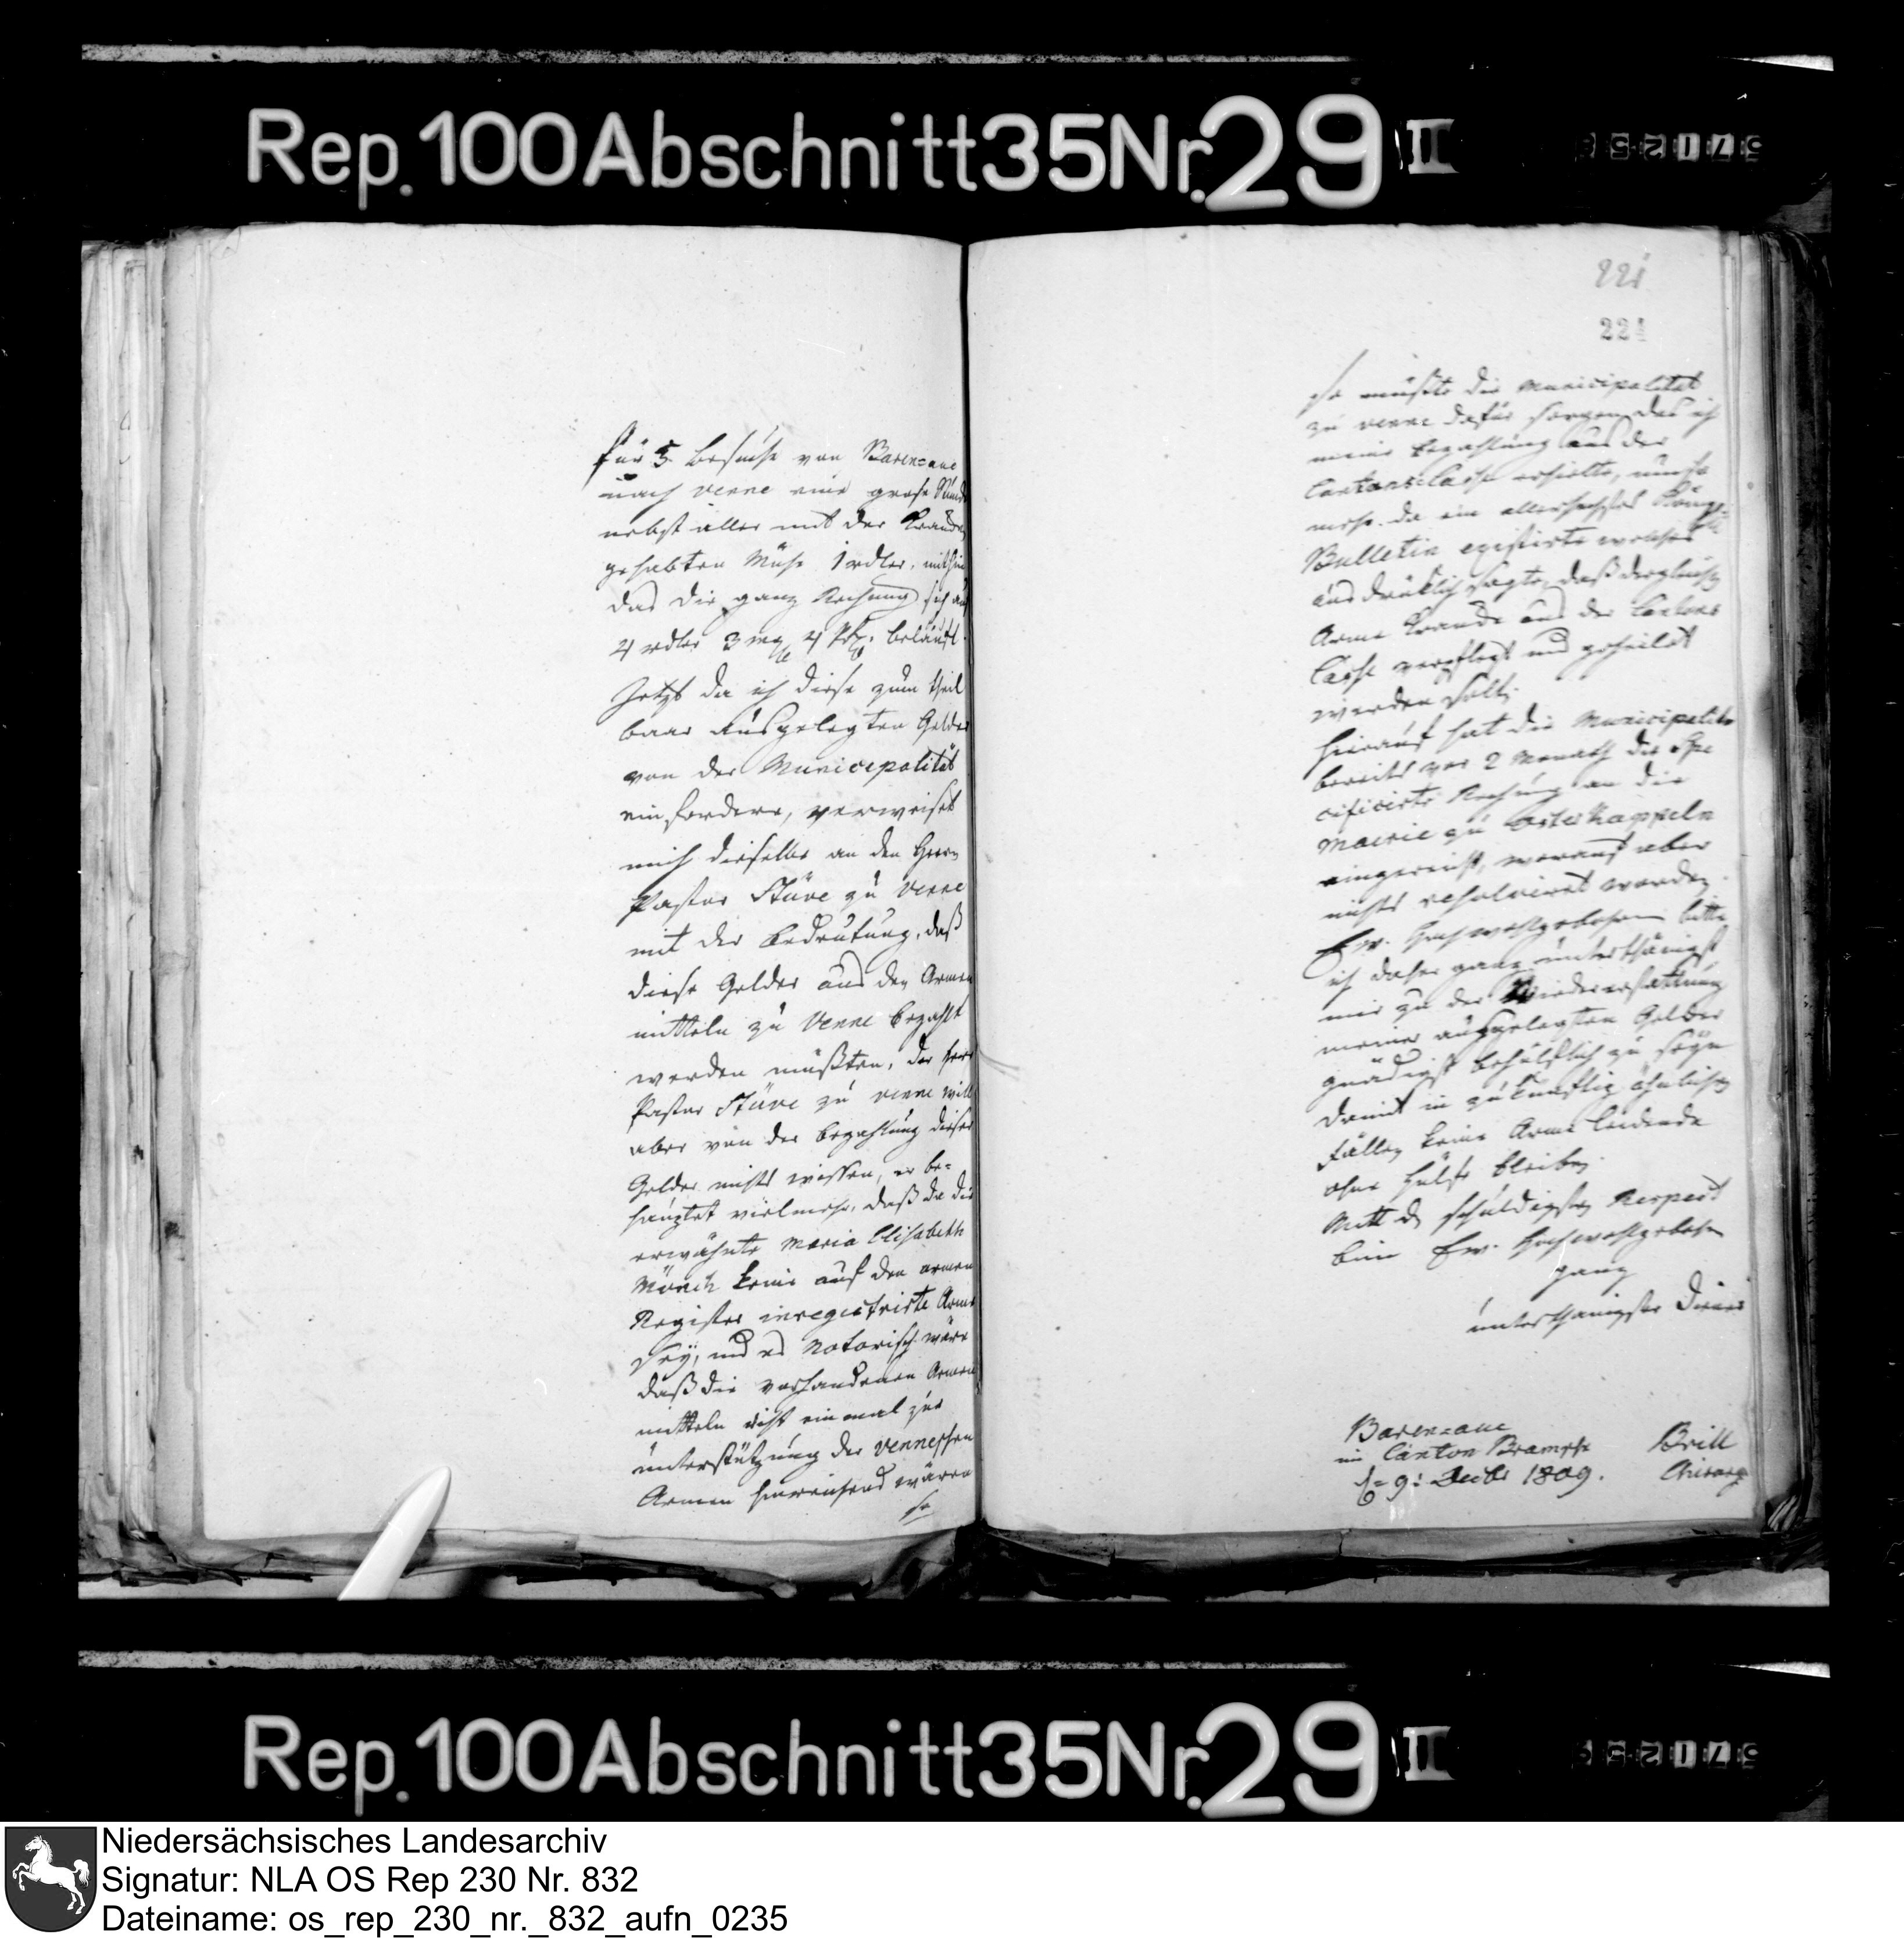 Rep. 100 Abschnitt 35 Nr. 29 II
für 5 Besuche von Barenaue
nach Venne eine große Stunde
nebst aller mit der Kranken
gehabten Mühe 1 rdler, mithin
das die ganz Rechnung sich auf
4 rdler 3 mg 4 Pf. beläuft.
Jetzt da ich diese zum theil
baar ausgelegten Gelder
von der Municipalität
einfordere, verweiset
mich dieselbe an den Herrn
Pastor Stüve zu Venne
mit der Bedeutung, daß
diese Gelder aus den Armen
mitteln zu Venne bezahlt
werden müßten, der Herr
Pastor Stüve zu Venne will
aber von der Bezahlung dieser
Gelder nichts wissen, er be=
hauptet vielmehr, daß da die
erwähnte Maria Elisabeth
Mönch keine auf den armen
Register inregistrirte Arme
sey, und es Notorisch wäre
daß die vorhandenen Armen
mitteln nicht einmal zur
unterstützung der Venneschen
Armen hinreichend wären
so
221
221
so müßte die Municipalitet
zu Venne dafür sorgen das ich
meine Bezahlung aus der
Cantons Casse erhielte, um so
mehr da ein allerhöchstes Königl:
Bulletin existirte welches
ausdrüklich sagte, daß dergleichen
Arme Kranke aus der Cantons
Casse verpflegt und geheilet
werden solte.
Hierauf hat die Municipalite
bereits vor 2 Monath die Spe
cificirte Rechnung an die
Mairie zu Osterkappeln
eingereicht, worauf aber
nichts resolviret worden.
Ew. Hochwohlgeboren bitte
ich daher ganz unterthänigst
mir zu der Wiedererstattung
meiner ausgelegten Gelder
gnädigst behülflich zu seyn
damit in zukünftig ähnlichen
Fällen keine Arme leidende
ohne Hülfe bleiben.
Mitt d. schuldigsten Respect
bin Ew. Hochwohlgeboren
ganz
unterthänigster Diener
Barenaue
im Canton Bramsche
d= 9: Decbr 1809.
Brill
Chirurg
Rep. 100 Abschnitt 35 Nr. 29 II
Niedersächsisches Landesarchiv
Signatur: NLA OS Rep 230 Nr. 832
Dateiname: os_rep_230_nr._832_aufn_0235